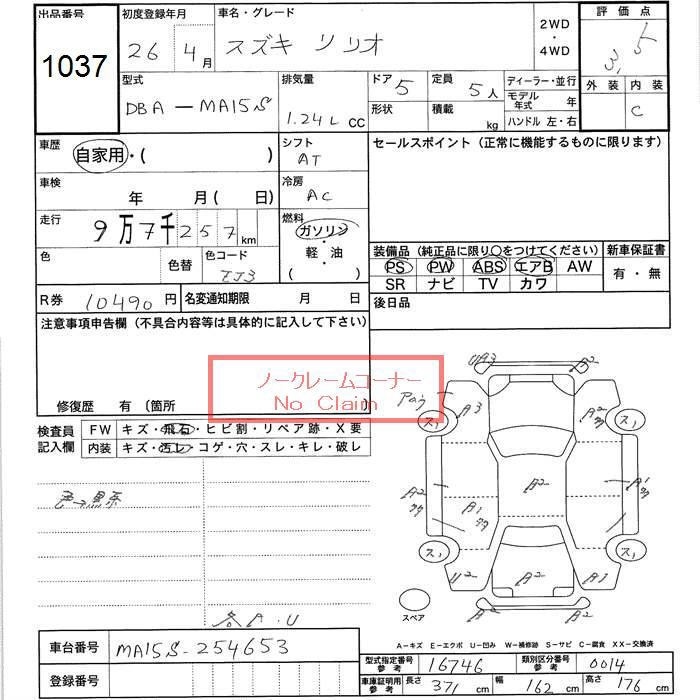 出品番号
1037
初度登録年月
26 4月
車名・グレード
スズキ ソリオ
2WD
・
4WD
評価点
3.5
外装 内装
C
型式
DBA-MA15S
排気量
1.24L cc
ドア 5
形状
定員 5人
積載 kg
ディーラー・並行
モデル年式 年
ハンドル 左・右
車歴
自家用・( )
シフト
AT
セールスポイント(正常に機能するものに限ります)
車検
年 月(日)
冷房
AC
走行
9万7千257km
燃料
ガソリン
・
軽・油
( )
色
色替
色コード
ZJ3
装備品(純正品に限り〇をつけてください)
PS PW ABS エアB AW
SR ナビ TV カワ
新車保証書
有・無
R券 10490円
名変通知期限 月 日
後日品
注意事項申告欄(不具合内容等は具体的に記入して下さい)
修復歴 有〔箇所
ノークレームコーナー
No Claim
検査員
記入欄
FW キズ・飛石・ヒビ割・リペア跡・X要
内装 キズ・汚レ・コゲ・穴・スレ・キレ・破レ
色→黒系
各A・U
UA3
A2
A3
A2
ス,
ス,
A2
A2
A1
A1
ス,
ス,
U2
A2
A1
A2
スペア
A-キズ E-エクボ U-凹み W-補修跡 S-サビ C-腐食 XX-交換済
車台番号 MA15S-254653
登録番号
型式指定番号
参考
16746
類別区分番号
参考
0014
車庫証明用
参考
長さ 371cm 幅 162cm 高さ 176cm